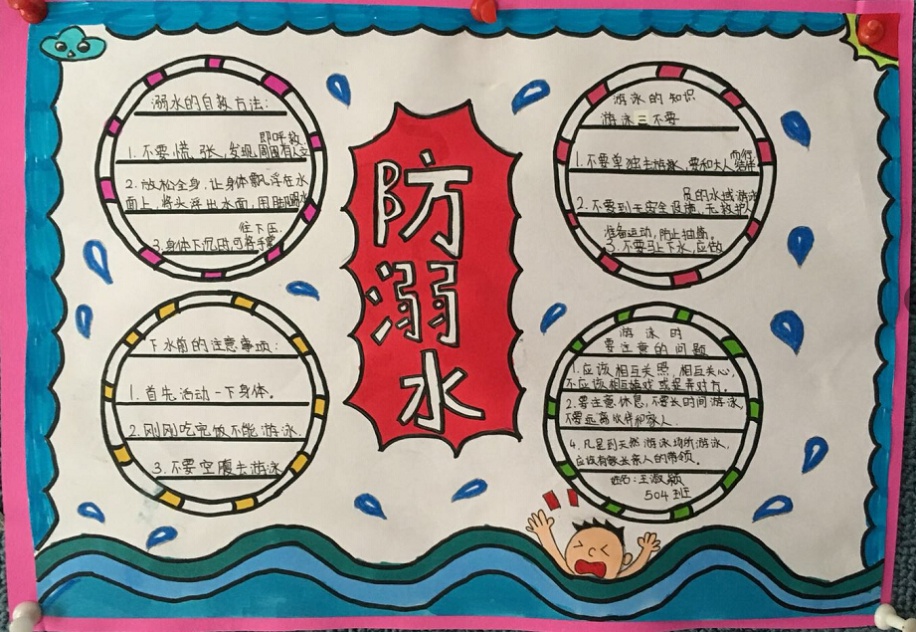 溺水的自救方法:
即呼救.
1.不要慌张,发现周围有人立
2.放松全身,让身体飘浮在水
面上,将头浮出水面,用脚踢水
往下压.
3.身体下沉时,可将手掌
防
溺
水
游泳的知识
游泳三不要
而行.
1.不要单独去游泳,要和大人结伴
员的水域游泳
2.不要到无安全设施、无救护人
准备运动,防止抽筋.
3.不要马上下水,应做
下水前的注意事项:
1.首先活动一下身体.
2.刚刚吃完饭不能游泳.
3.不要空腹去游泳
游泳时
要注意的问题
1.应该相互关照,相互关心,
不应该相互嬉戏或是弄对方.
2.要注意休息,不要长时间游泳,
不要远离伙伴和家人.
4.凡是到天然游泳场所游泳,
应该有家人的带领.
姓名:王淑颖
504班